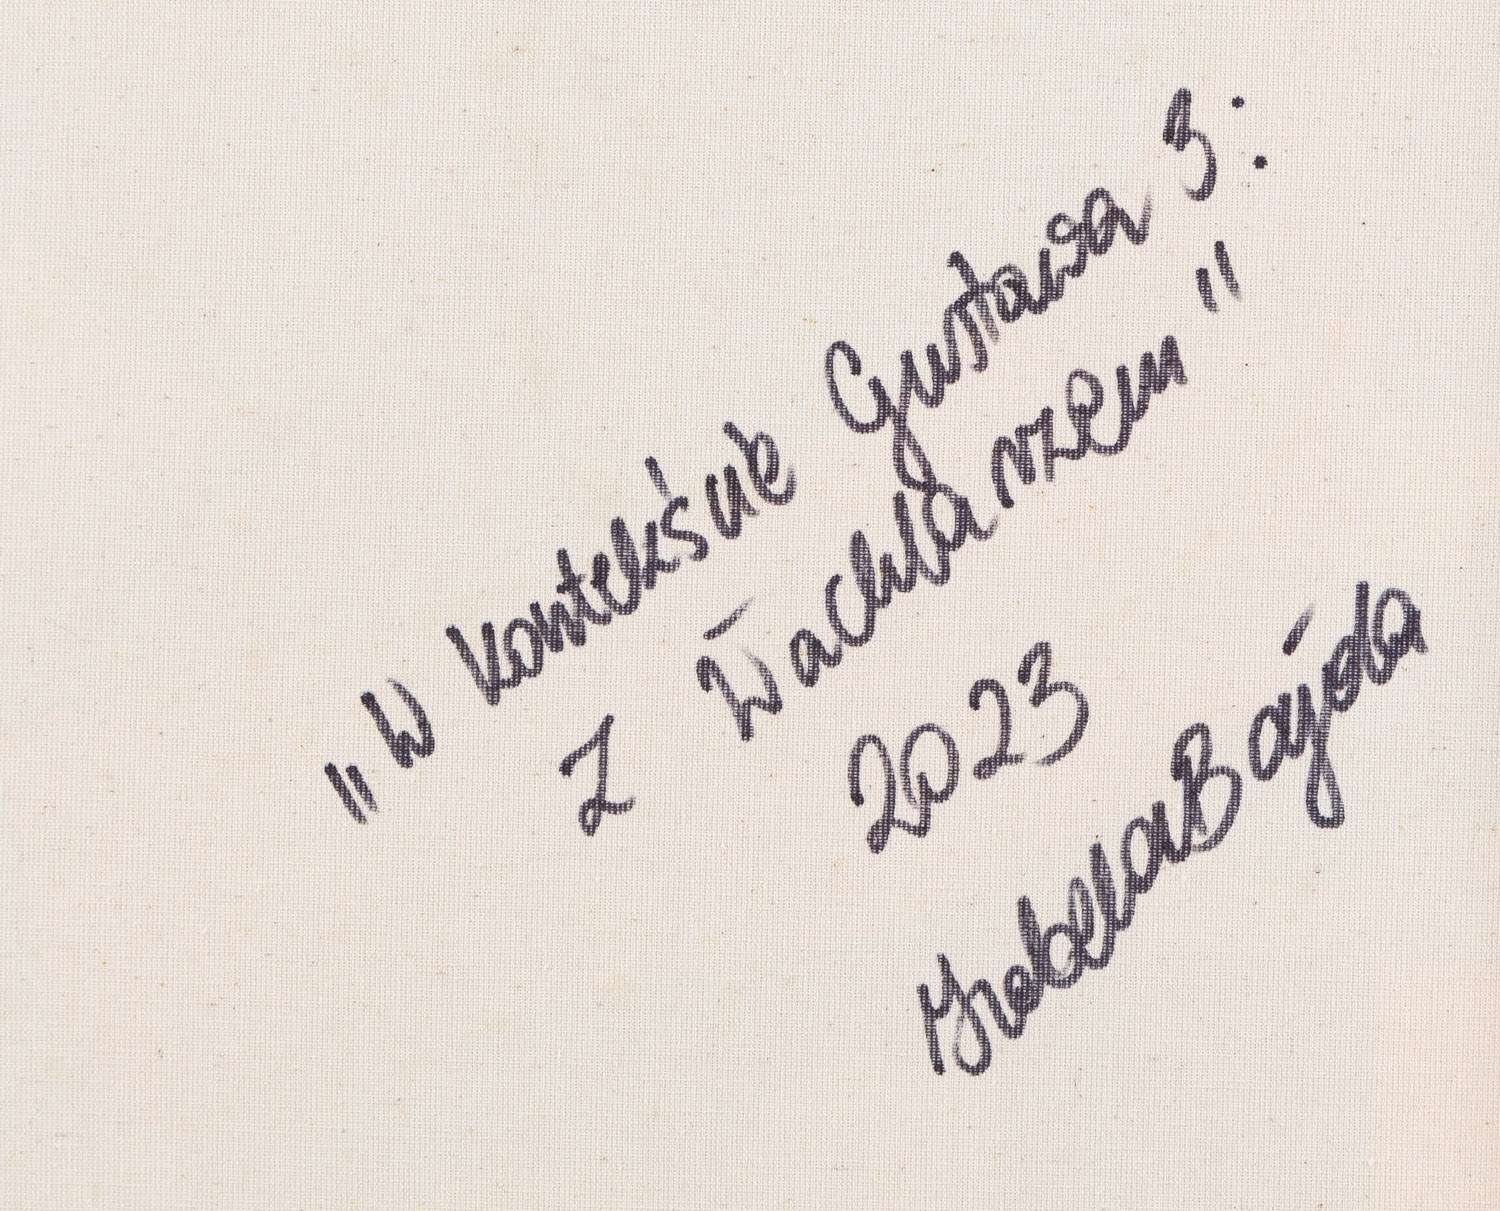 „W kontekście Gustawa 3:
Z Wachlarzem"
2023
Izabela Bajda